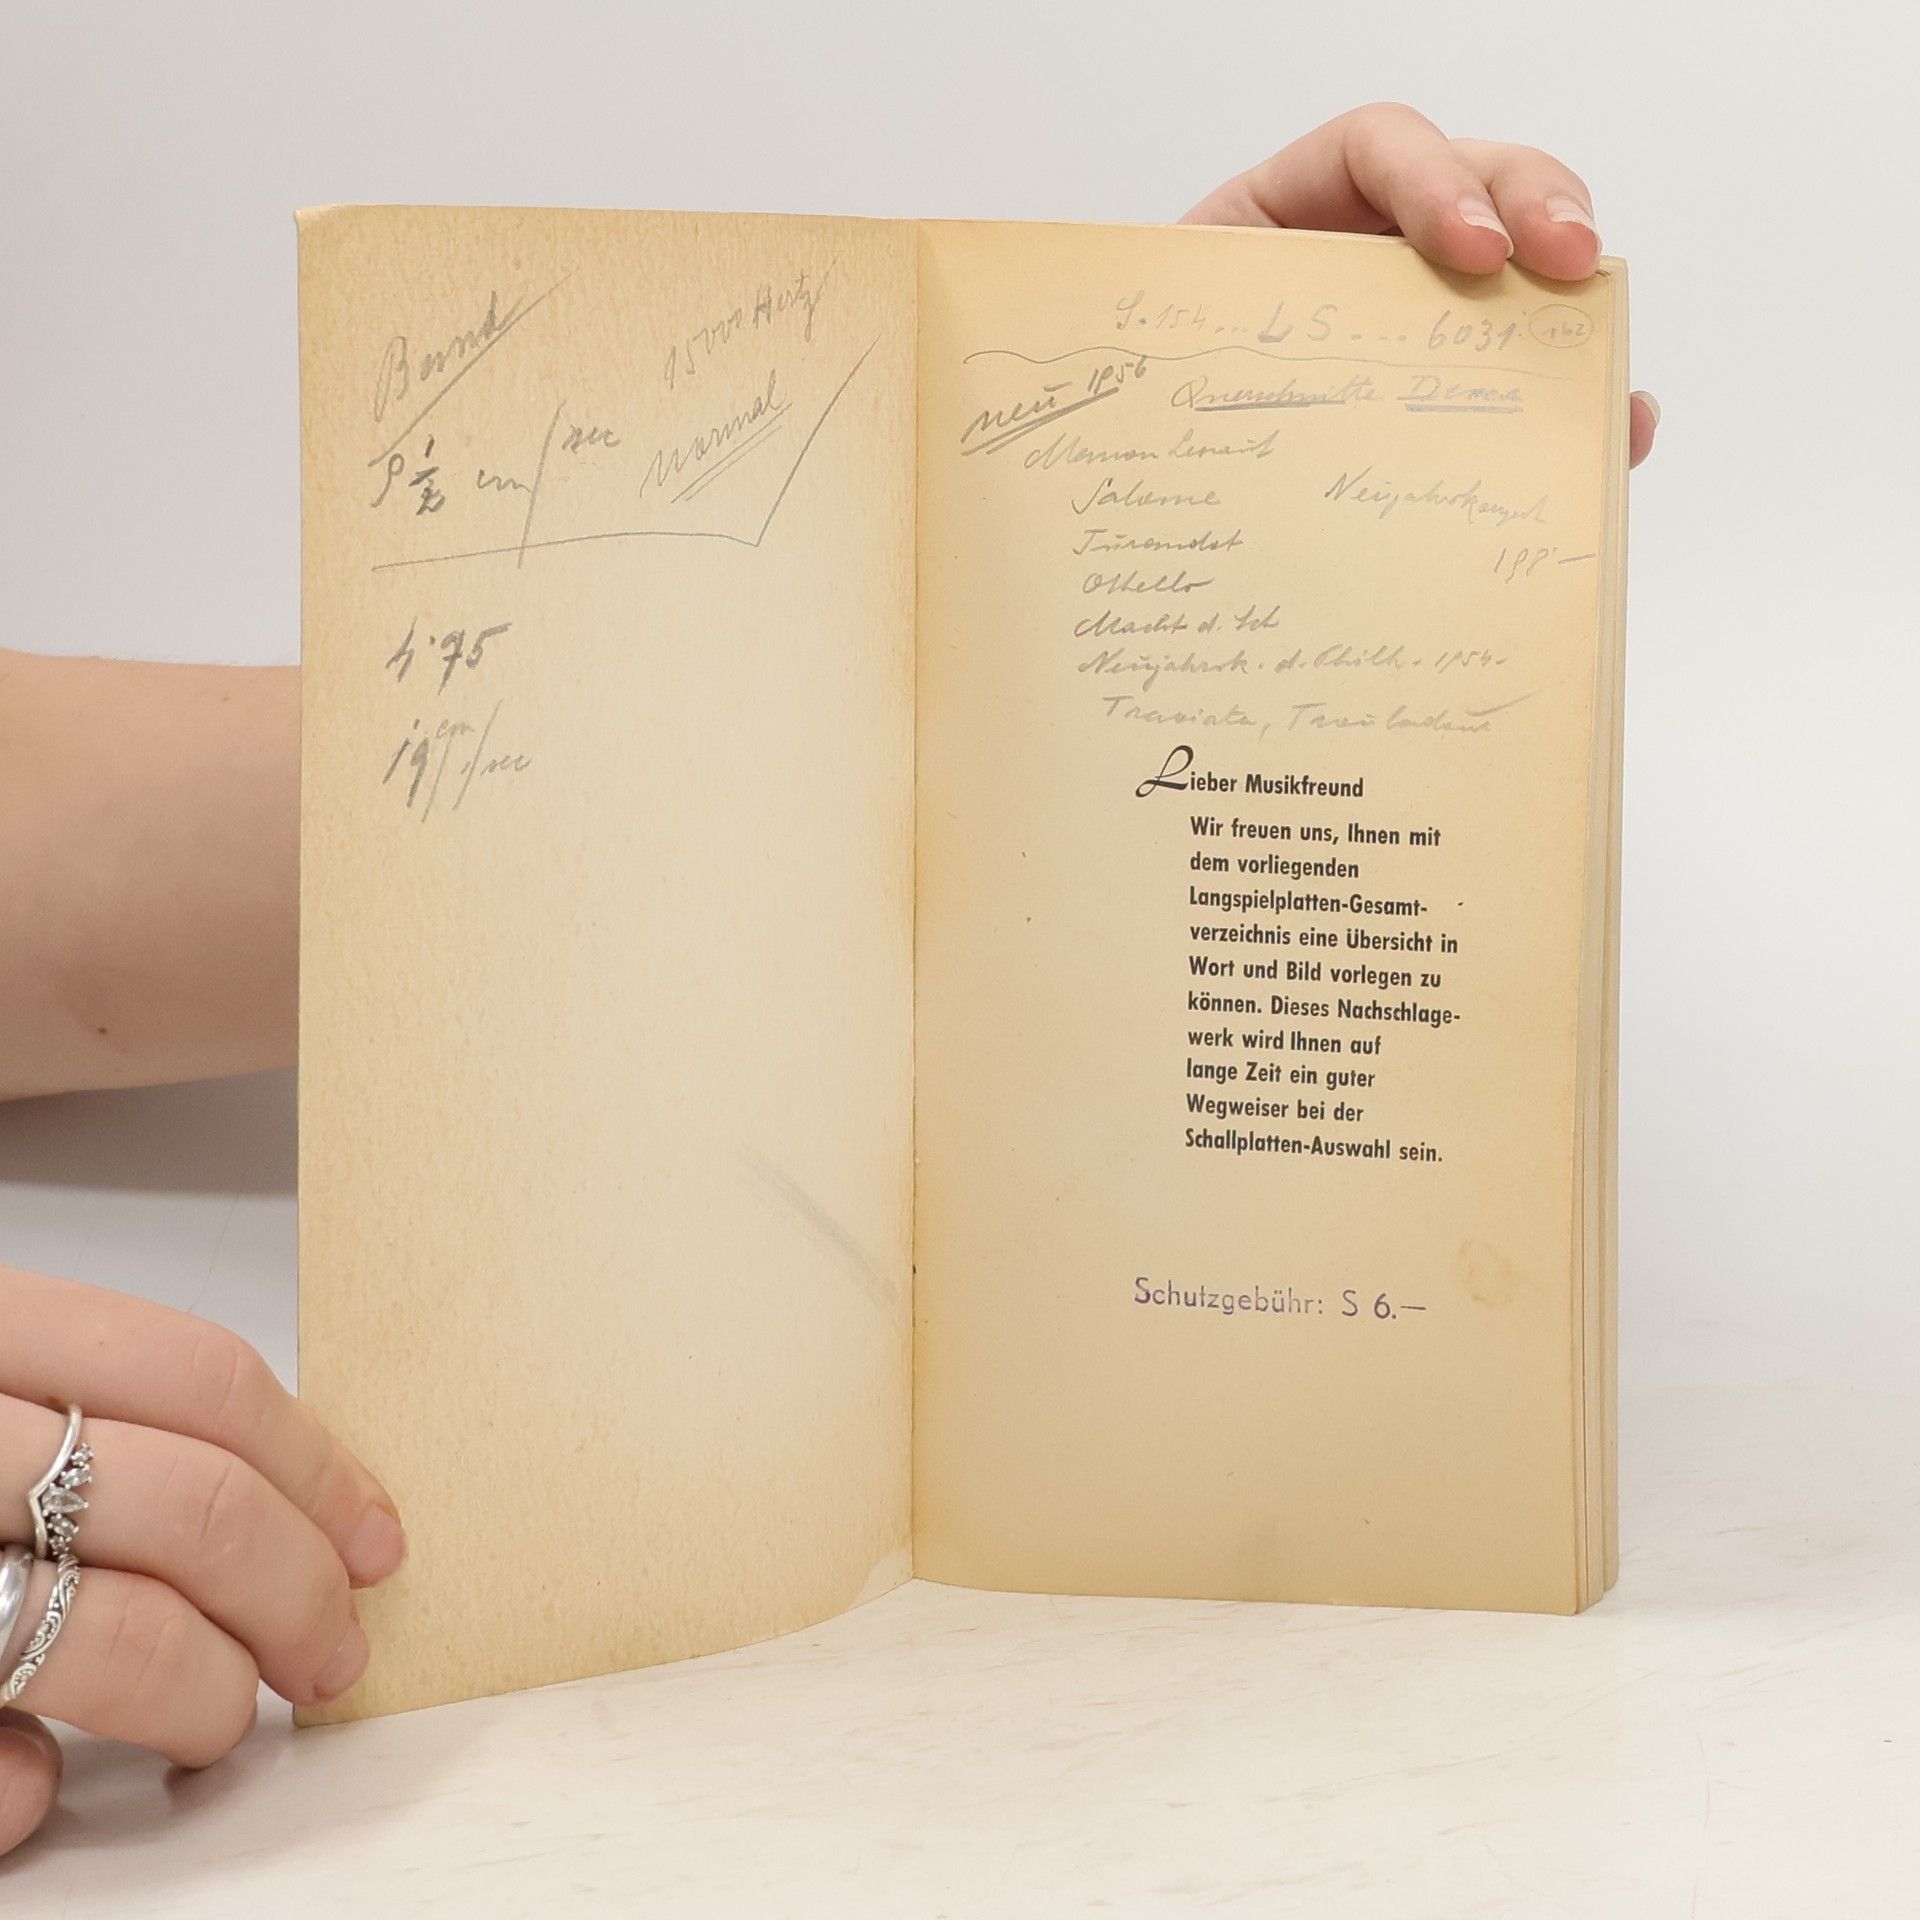 Band
9 1/2 cm/sec
15000 Hertz
normal
4·75
19 cm/sec
S. 154 ... LS ... 6031 162
neu 1956 Querschnitte Decca
Manon Lescaut
Salome
Neujahrskonzert
Turandot
198·—
Othello
Macht d. Sch
Neujahrsk. d. Philh. 1954.
Traviata, Troubadour
Lieber Musikfreund
Wir freuen uns, Ihnen mit
dem vorliegenden
Langspielplatten-Gesamt-
verzeichnis eine Übersicht in
Wort und Bild vorlegen zu
können. Dieses Nachschlage-
werk wird Ihnen auf
lange Zeit ein guter
Wegweiser bei der
Schallplatten-Auswahl sein.
Schutzgebühr: S 6.—